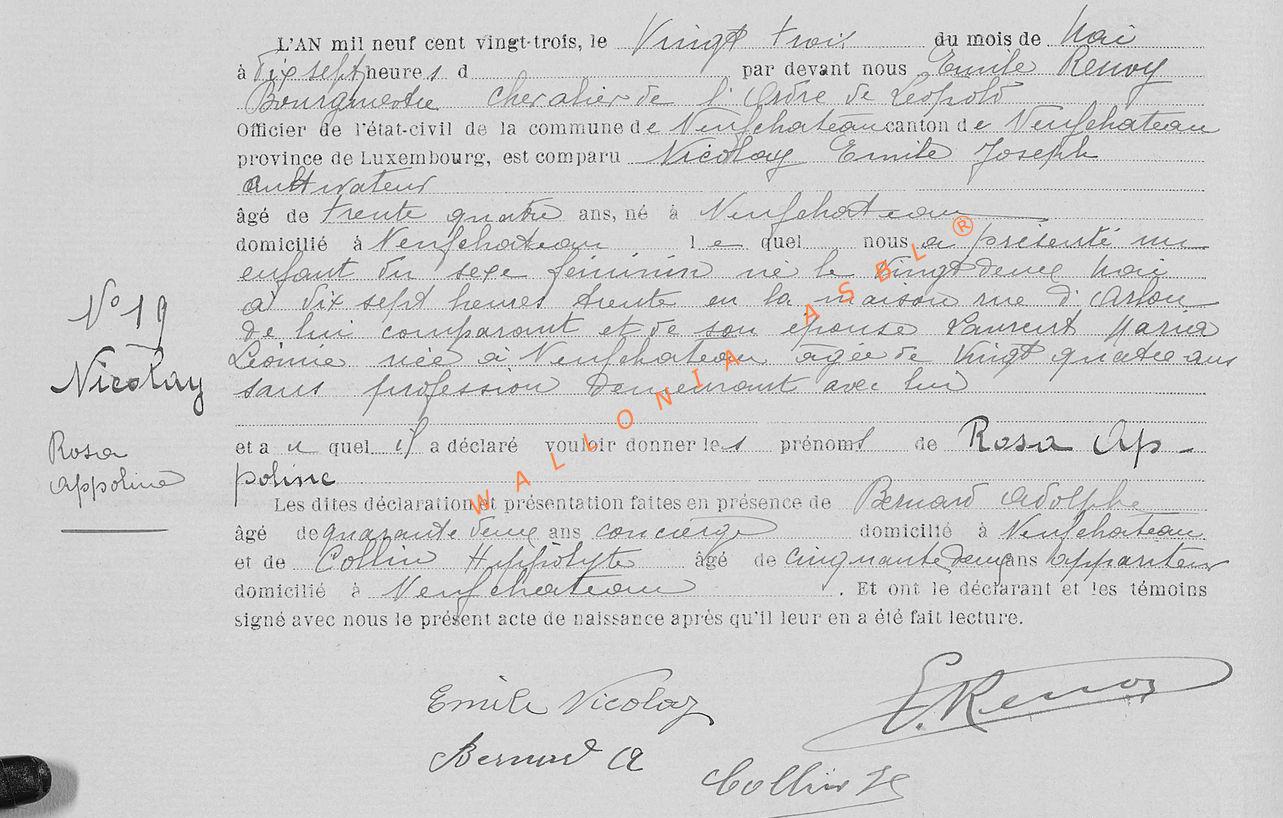 L'AN mil neuf cent vingt-trois, le Vingt trois du mois de Mai
à Dix sept heures d par devant nous Emile Renoy
Bourgmestre Chevalier de l'Ordre de Léopold
Officier de l'état-civil de la commune de Neufchateau canton de Neufchateau
province de Luxembourg, est comparu Nicolay Emile Joseph
Cultivateur
âgé de trente quatre ans, né à Neufchateau
domicilié à Neufchateau le quel nous a présenté un
enfant du sexe féminin né le vingt deux Mai
à dix sept heures trente en la maison rue d'Arlon
de lui comparant et de son épouse Laurent Maria
Léonie née à Neufchateau âgée de Vingt quatre ans
sans profession demeurant avec lui
et a u quel il a déclaré vouloir donner les prénoms de Rosa Ap-
poline
Les dites déclaration et présentation faites en présence de Bernard Adolphe
âgé de quarante deux ans concierge domicilié à Neufchateau
et de Collin Hippolyte âgé de cinquante deux ans appariteur
domicilié à Neufchateau . Et ont le déclarant et les témoins
signé avec nous le présent acte de naissance après qu'il leur en a été fait lecture.
N° 19
Nicolay
Rosa
Appoline
WALLONIA ASBL ®
Emile Nicolay
E. Renoy
Bernard A
Collin H